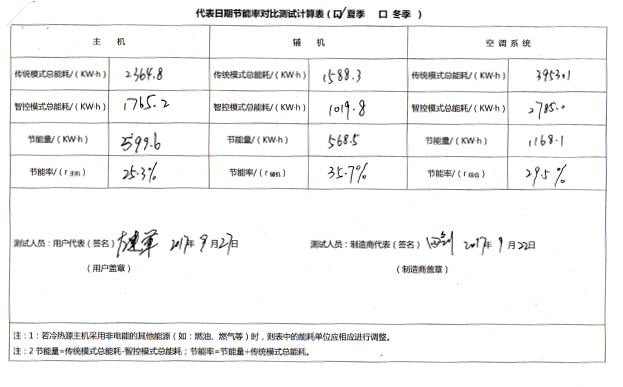 代表日期节能率对比测试计算表（☑夏季 口 冬季 ）
主 机 辅 机 空 调 系 统
传统模式总能耗/( KW·h ) 2364.8 传统模式总能耗/( KW·h ) 1588.3 传统模式总能耗/( KW·h ) 3953.1
智控模式总能耗/( KW·h ) 1765.2 智控模式总能耗/( KW·h ) 1019.8 智控模式总能耗/( KW·h ) 2785.0
节能量/( KW·h ) 599.6 节能量/( KW·h ) 568.5 节能量/( KW·h ) 1168.1
节能率/( r 主机 ) 25.3% 节能率/( r 辅机 ) 35.7% 节能率/( r 综合 ) 29.5%
测试人员：用户代表（签名） 2017年 9月27日 测试人员：制造商代表（签名） 2017年 9月22日
（用户盖章） （制造商盖章）
注：1：若冷热源主机采用非电能的其他能源（如：燃油、燃气等）时，则表中的能耗单位应相应进行调整。
注：2 节能量=传统模式总能耗-智控模式总能耗；节能率=节能量÷传统模式总能耗。